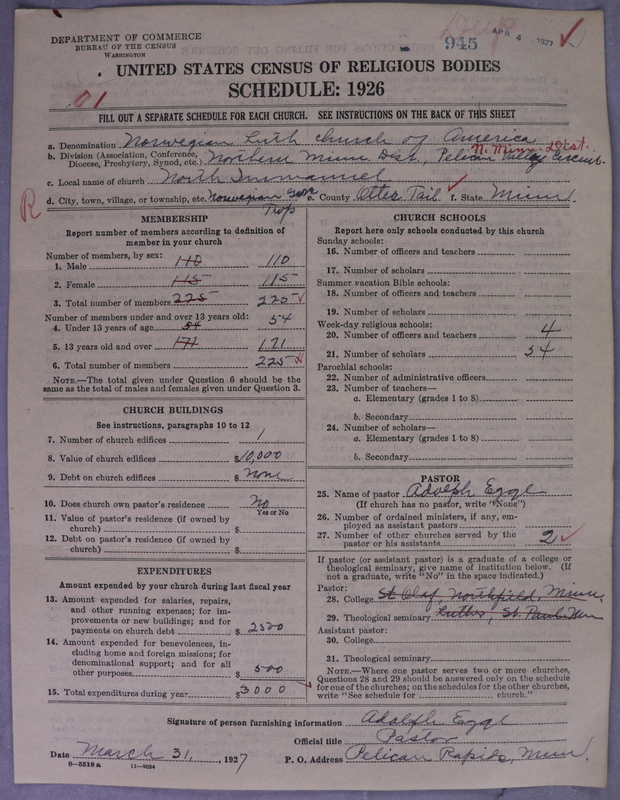 DEPARTMENT OF COMMERCE
BUREAU OF THE CENSUS
WASHINGTON
945
APR 4 1927
UNITED STATES CENSUS OF RELIGIOUS BODIES
SCHEDULE: 1926
01
FILL OUT A SEPARATE SCHEDULE FOR EACH CHURCH. SEE INSTRUCTIONS ON THE BACK OF THIS SHEET
a. Denomination Norwegian Luth church of America
N. Minn. Dist.
b. Division (Association, Conference, Diocese, Presbytery, Synod, etc.) Northern Minn Dist., Pelican Valley Circuit.
c. Local name of church North Immanuel
R
d. City, town, village, or township, etc. Norwegian Grove e. County Otter Tail f. State Minn.
MEMBERSHIP
Report number of members according to definition of
member in your church
Number of members, by sex:
1. Male 110 110
2. Female 115 115
3. Total number of members 225 225
Number of members under and over 13 years old:
4. Under 13 years of age 54 54
5. 13 years old and over 171 171
6. Total number of members 225
NOTE.—The total given under Question 6 should be
same as the total of males and females given under Question 3.
CHURCH BUILDINGS
See instructions, paragraphs 10 to 12
7. Number of church edifices 1
8. Value of church edifices $10,000
9. Debt on church edifices $ None
10. Does church own pastor's residence No
Yes or No
11. Value of pastor's residence (if owned by
church) $
12. Debt on pastor's residence (if owned by
church) $
EXPENDITURES
Amount expended by your church during last fiscal year
13. Amount expended for salaries, repairs,
and other running expenses; for im-
provements or new buildings; and for
payments on church debt $ 2500
14. Amount expended for benevolences, in-
cluding home and foreign missions; for
denominational support; and for all
other purposes $ 500
15. Total expenditures during year $3000
CHURCH SCHOOLS
Report here only schools conducted by this church
Sunday schools:
16. Number of officers and teachers
17. Number of scholars
Summer vacation Bible schools:
18. Number of officers and teachers
19. Number of scholars
Week-day religious schools:
20. Number of officers and teachers 4
21. Number of scholars 54
Parochial schools:
22. Number of administrative officers
23. Number of teachers—
a. Elementary (grades 1 to 8)
b. Secondary
24. Number of scholars—
a. Elementary (grades 1 to 8)
b. Secondary
PASTOR
25. Name of pastor Adolph Egge
(If church has no pastor, write "None")
26. Number of ordained ministers, if any, em-
ployed as assistant pastors
27. Number of other churches served by the
pastor or his assistants 2
If pastor (or assistant pastor) is a graduate of a college or
theological seminary, give name of institution below. (If
not a graduate, write "No" in the space indicated.)
Pastor:
28. College St Olaf, Northfield, Minn.
29. Theological seminary Luther, St. Paul Minn
Assistant pastor:
30. College
31. Theological seminary
NOTE.—Where one pastor serves two or more churches,
Questions 28 and 29 should be answered only on the schedule
for one of the churches; on the schedules for the other churches,
write "See schedule for church."
Signature of person furnishing information Adolph Egge
Official title Pastor
Date March 31, 1927 P. O. Address Pelican Rapids, Minn.
8—5518a 11—9054